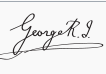 George R.I.